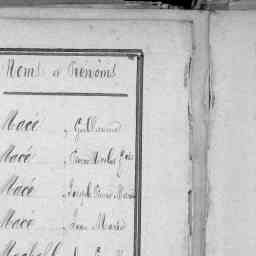 Noms et Prénoms
Macé Guillaume
Macé Pierre
Macé Joseph Pierre Marie
Macé Jean Marie